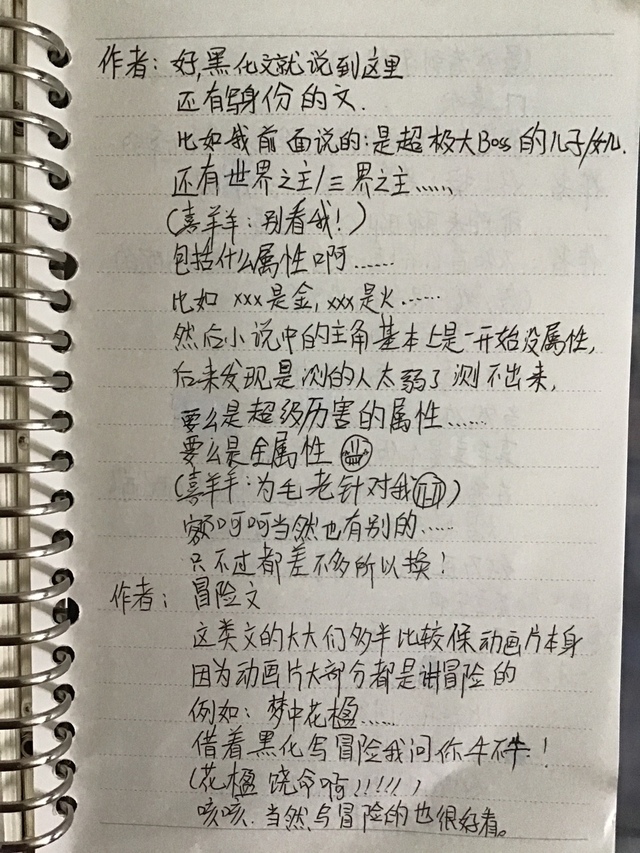 作者：好,黑化文就说到这里
还有写身份的文.
比如我前面说的:是超极大Boss的儿子/女儿.
还有世界之主/三界之主......
(喜羊羊：别看我!)
包括什么属性啊......
比如 xxx是金,xxx是火......
然后小说中的主角基本上是一开始没属性,
后来发现是测的人太弱了测不出来,
要么是超级厉害的属性......
要么是全属性
(喜羊羊:为毛老针对我)
额呵呵当然也有别的.....
只不过都差不多所以换!
作者：冒险文
这类文的大大们多半比较保动画片本身
因为动画片大部分都是讲冒险的
例如：梦中花楹.....
借着黑化写冒险我问你牛不牛!
(花楹饶命啊!!!!!)
咳咳.当然写冒险的也很好看。